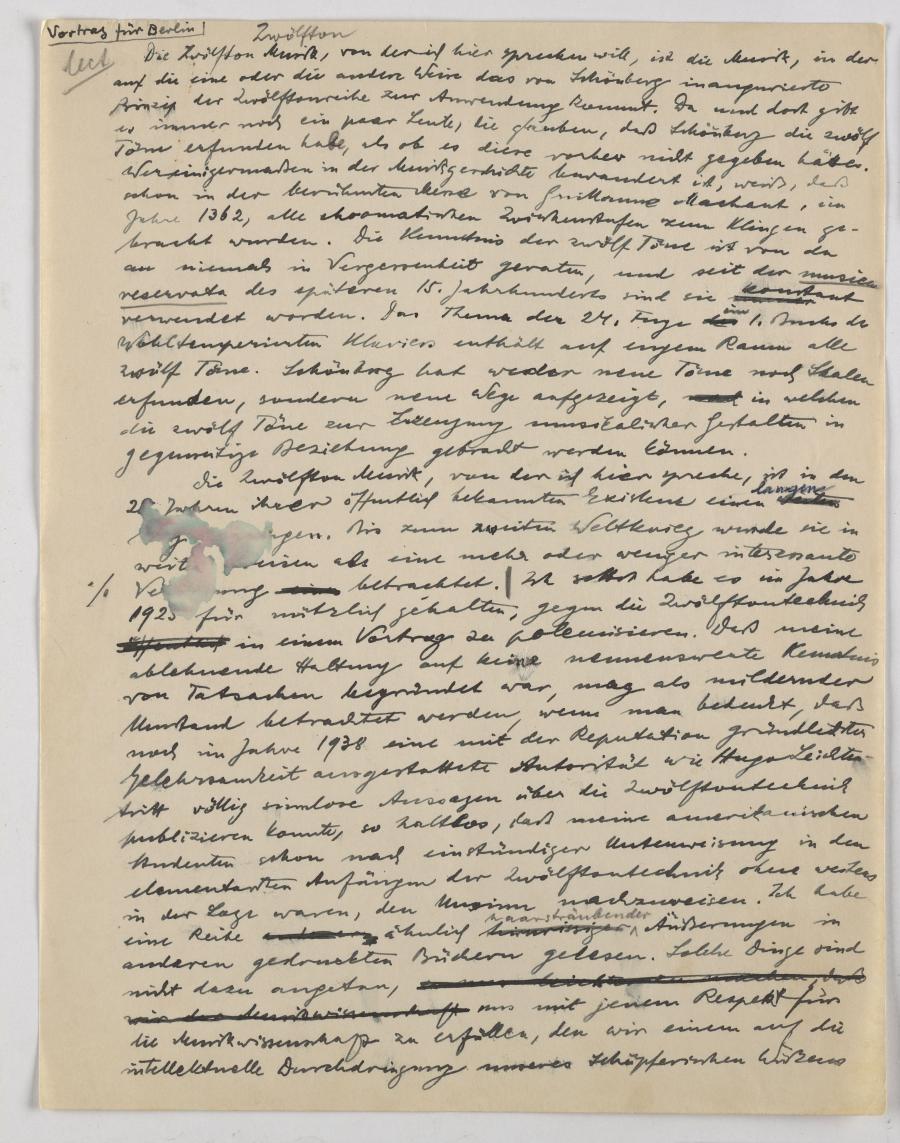 Vortrag für Berlin Zwölfton
lect
Die Zwölfton Musik, von der ich hier sprechen will, ist die Musik, in der
auf die eine oder die andere Weise das von Schönberg inaugurierte
Prinzip der Zwölftonreihe zur Anwendung kommt. Da und dort gibt
es immer noch ein paar Leute, die glauben, daß Schönberg die zwölf
Töne erfunden habe, als ob es diese vorher nicht gegeben hätte.
Wer einigermaßen in der Musikgeschichte bewandert ist, weiß, daß
schon in der berühmten Messe von Guillaume Machaut, im
Jahre 1362, alle chromatischen Zwischenstufen zum Klingen ge-
bracht wurden. Die Kenntnis der zwölf Töne ist von da
an niemals in Vergessenheit geraten, und seit der musica
reservata des späteren 15. Jahrhunderts sind sie konstant
verwendet worden. Das Thema der 24. Fuge im 1. Buchs des
Wohltemperierten Klaviers enthält auf engem Raum alle
zwölf Töne. Schönberg hat weder neue Töne noch Skalen
erfunden, sondern neue Wege aufgezeigt, in welchen
die zwölf Töne zur Erzeugung musikalischer Gestalten in
gegenseitige Beziehung gebracht werden können.
Die Zwölfton Musik, von der ich hier spreche, ist in den
Jahren ihrer öffentlich bekannten Existenz einen langen
gen. Bis zum zweiten Weltkrieg wurde sie in
weit eisen als eine mehr oder weniger interessante
Ve ung betrachtet. | Ich selbst habe es im Jahre
192 für nützlich gehalten, gegen die Zwölftontechnik
in einem Vortrag zu polemisieren. Daß meine
ablehnende Haltung auf keine nennenswerte Kenntnis
von Tatsachen begründet war, mag als mildernder
Umstand betrachtet werden, wenn man bedenkt, daß
noch im Jahre 1938 eine mit der Reputation gründlichster
Gelehrsamkeit ausgestattete Autorität wie Hugo Leichten-
tritt völlig sinnlose Aussagen über die Zwölftontechnik
publizieren konnte, so haltlos, daß meine amerikanischen
Studenten schon nach einstündiger Unterweisung in den
elementarsten Anfängen der Zwölftontechnik ohne weiteres
in der Lage waren, den Unsinn nachzuweisen. Ich habe
eine Reihe ähnlich haarsträubender Äußerungen in
anderen gedruckten Büchern gelesen. Solche Dinge sind
nicht dazu angetan,
uns mit jenem Respekt für
die Musikwissenschaft zu erfüllen, den wir einem auf die
intellektuelle Durchdringung unseres schöpferischen